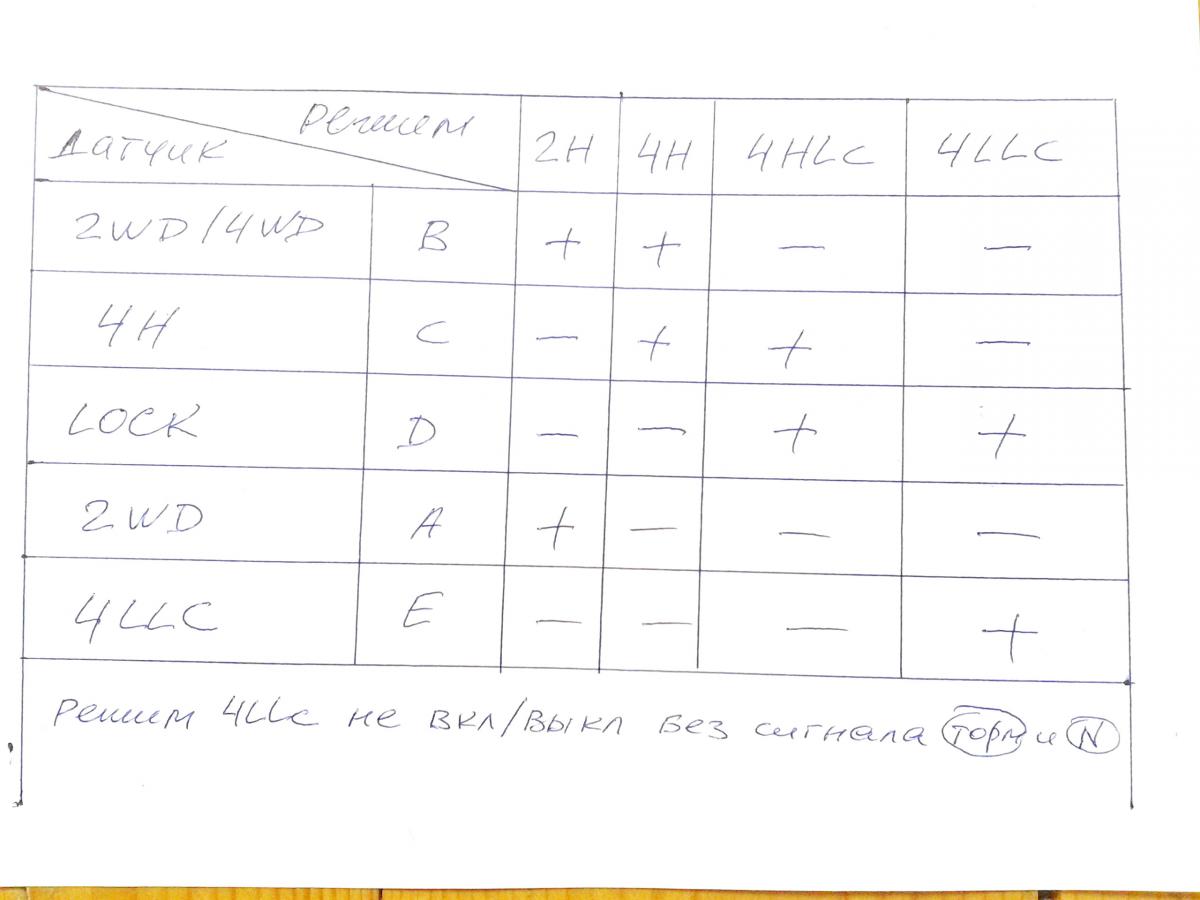 Режим
Датчик 2H 4H 4HLC 4LLC
2WD/4WD B + + — —
4H C — + + —
LOCK D — — + +
2WD A + — — —
4LLC E — — — +
Режим 4LLC не вкл/выкл без сигнала торм и N